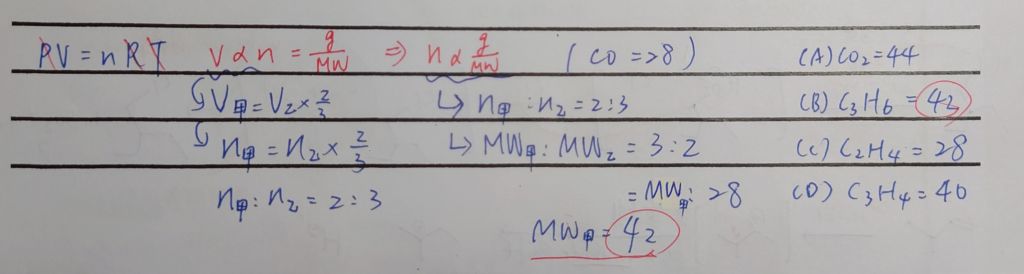 PV = nRT V∝n = g/MW ⇒ n∝g/MW (CO = 28) (A) CO2 = 44
V甲 = V乙 × 2/3 ↳ n甲 : n乙 = 2 : 3 (B) C3H6 = 42
n甲 = n乙 × 2/3 ↳ MW甲 : MW乙 = 3 : 2 (C) C2H4 = 28
n甲 : n乙 = 2 : 3 = MW甲 : 28 (D) C3H4 = 40
MW甲 = 42